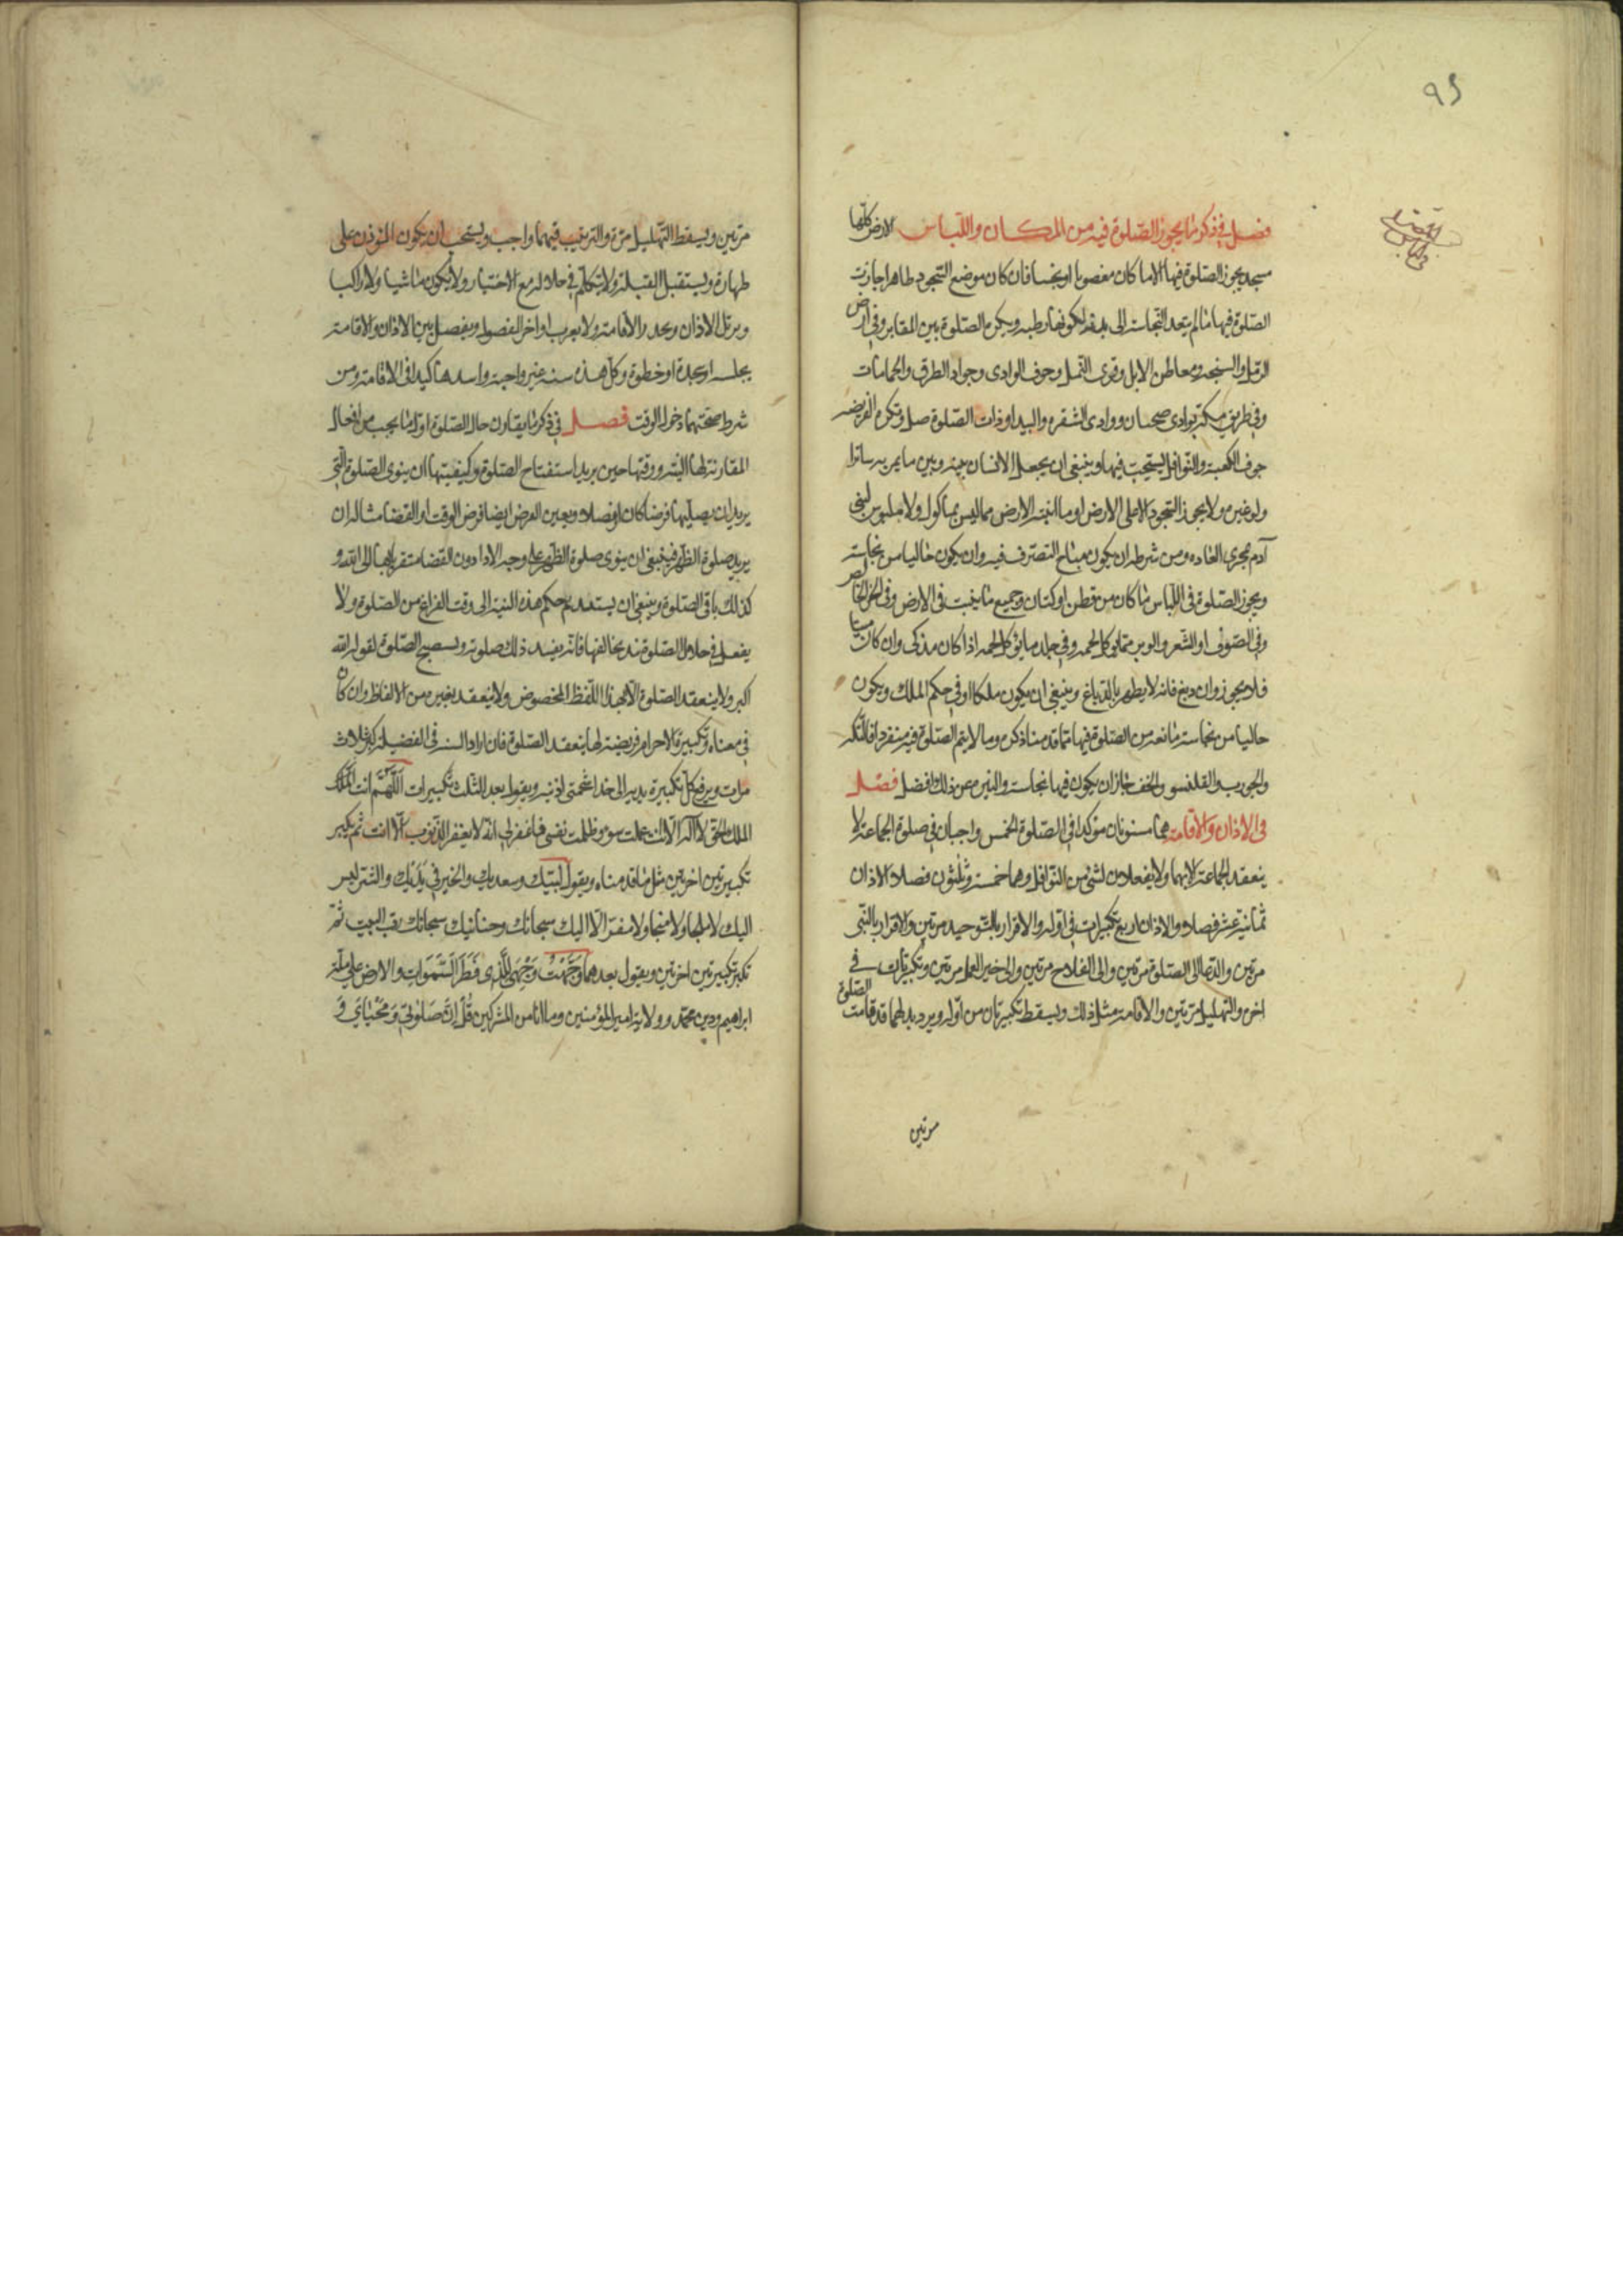 ٩٥
فصل في ذكر ما يجوز الصّلوة فيه من المكان واللّباس الارض كلّها
مسجد يجوز الصلوة فيها الا ما كان مغصوبا او نجسا فان كان موضع السّجود طاهرا جازت
الصّلوة فيها ما لم يتعد النّجاسة الى بكونها رطبه ويكره الصّلوة بين المقابر وفي ارض
الرمّل والسبخه ومعاطن الابل وقرى النّمل وجوف الوادى وجواد الطرق والحمامات
وفي طريق مكّة بوادى ضجنان ووادى الشقره والبيدا وذات الصّلاصل وتكره الفريضه
جوف الكعبة والنّوافل يستحبّ فيها وينبغى ان يجعل الانسان بينه وبين ما يمر به ساترا
ولو عنزه ولا يجوز السّجود الا على الارض او ما انبته الارض مما ليس بماكول ولا ملبوس لبنى
آدم بمجرى العاده ومن شرطه ان يكون مباح التصرّف فيه وان يكون خاليا من نجاسته
ويجوز الصّلوة فى اللّباس ما كان من قطن او كتان وجميع ما ينبت فى الارض وفى الخز الخالص
وفى الصّوف او الشّعر والوبر مما يوكل لحمه وفي جلد ما يؤكل لحمه اذا كان مذكى وان كان ميتا
فلا يجوز وان دبغ فانه لا يطهر بالدّباغ وينبغى ان يكون ملكا او في حكم الملك ويكون
خاليا من نجاسة مانعه من الصّلوة فيها مما قدمنا ذكره وما لا يتم الصّلوة فيه منفردا فالتّكه
والجورب والقلنسو والخف جاز ان يكون فيها نجاسة والتنزه عن ذلك افضل فصل
فى الاذان والاقامة هما مسنونان مؤكدا فى الصّلوة الخمس واجبان في صلوة الجماعة لا
ينعقد الجماعة الا بهما ولا يفعلان لشئ من النّوافل وهما خمسة وثلثون فصلا الاذان
ثمانية عشر فصلا والاذان اربع تكبيرات في اوله والاقرار بالتّوحيد مرتين والاقرار بالنّبى
مرتين والدّعا الى الصّلوة مرتين والى الفلاح مرتين والى خير العمل مرتين وتكبيرتان في
اخره والتهليل مرّتين والاقامة مثل ذلك ويسقط تكبيرتان من اوّله ويزد بدلهما قد قامت الصّلوة
مرتين
مرّتين ويسقط التّهليل مرّة والترتيب فيهما واجب ويستحب ان يكون المؤذن على
طهارة ويستقبل القبلة ولا يتكلّم في خلاله مع الاختيار ولا يكون ماشيا ولا راكبا
ويرتل الاذان ويحدر الاقامة ولا يعرب اواخر الفصول ويفصل بين الاذان والاقامة
بجلسه او سجدة او خطوة وكل هذه سنه غير واجبة واشدها تاكيدا فى الاقامة ومن
شرط صحتهما دخول الوقت فصل في ذكر ما يقارن حال الصّلوة اول ما يجب من افعال
المقارنة لها النية ووقتها حين يريد استفتاح الصّلوة وكيفيتها ان ينوى الصّلوة التى
يريد ان يصليها فرضا كان او نفلا ويعين الفرض ايضا فرض الوقت او القضا مثاله ان
يريد صلوة الظّهر فينبغى ان ينوى صلوة الظّهر على وجه الادا دون القضا متقربا بها الى الله و
كذلك باقى الصّلوة وينبغى ان يستديم حكم هذه النية الى وقت الفراغ من الصّلوة ولا
يفعل في خلال الصّلوة نيه يخالفها فانّه يفسد ذلك صلوته ويستفتح الصّلوة بقوله الله
اكبر ولا ينعقد الصّلوة الّا بهذا اللّفظ المخصوص ولا ينعقد بغيره من الالفاظ وان كان
في معناه وتكبيرة الاحرام فريضة بها ينعقد الصّلوة فان اراد السنه فى الفضيله كبر ثلاث
مرات ويرفع كل تكبيرة يديه الى حذا شحمتى اذنيه ويقول بعد الثلث تكبيرات اللّهمّ انت الملك
الملك الحق لا اله الّا انت عملت سوء وظلمت نفسى فاغفر لي انّه لا يغفر الذّنوب الّا انت ثم يكبر
تكبيرتين اخرتين مثل ما قدمناه ويقول لبّيك وسعديك والخير في يديك والشّر ليس
اليك لا ملجا ولا منجا ولا مفرّ الّا اليك سبحانك وحنانيك سبحانك رب البيت ثمّ
تكبر تكبيرتين اخرتين ويقول بعدهما وَجَّهْتُ وَجْهِىَ لِلَّذى فَطَرَ السَّمَوَاتِ والارض على ملّة
ابراهيم ودين محمّد وولاية امير المؤمنين وما انا من المشركين قُل اِنَّ صَلَوتِى وَمَحْيَاىَ وَ